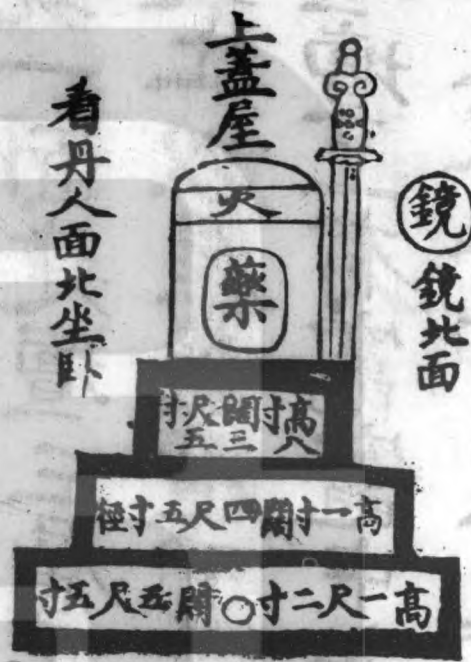 鏡
鏡北面
上蓋屋
火
藥
看丹人面北坐卧
高八寸闊三尺五寸
高一寸闊四尺五寸徑
高一尺二寸○闊五尺五寸